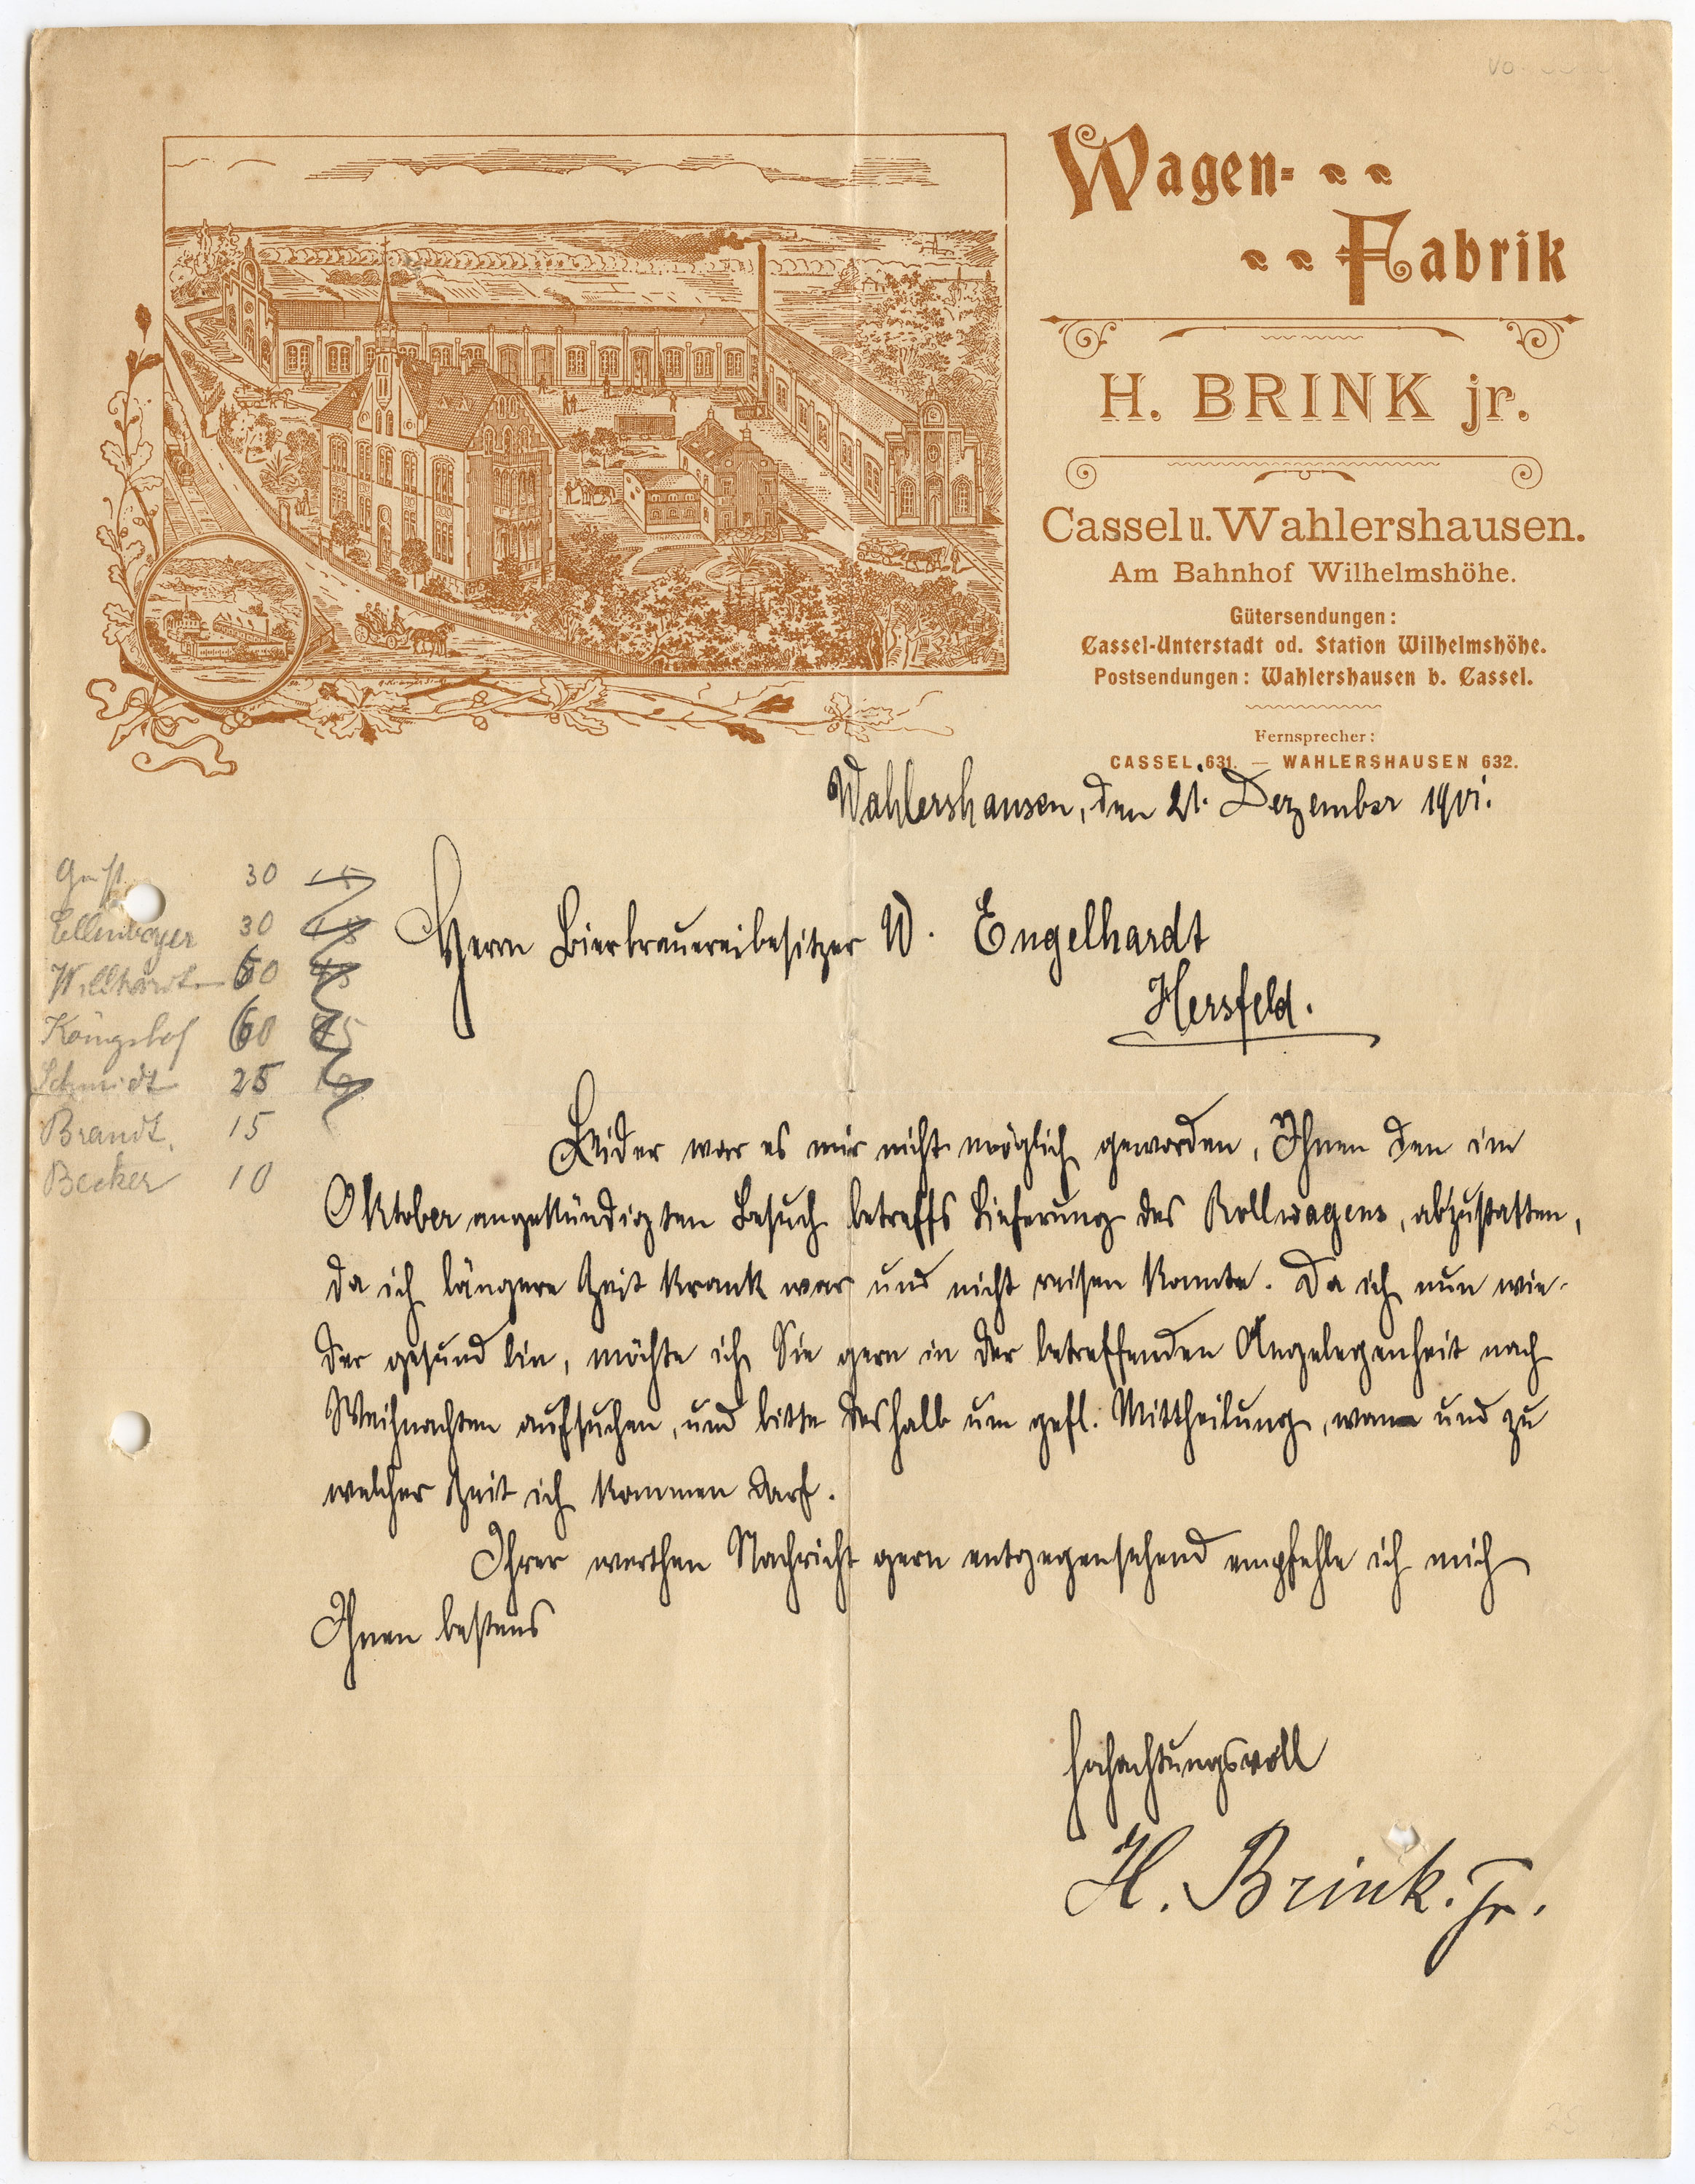 Wagen-
Fabrik
H. BRINK jr.
Cassel u. Wahlershausen.
Am Bahnhof Wilhelmshöhe.
Gütersendungen:
Cassel-Unterstadt od. Station Wilhelmshöhe.
Postsendungen: Wahlershausen b. Cassel.
Fernsprecher:
CASSEL 631. — WAHLERSHAUSEN 632.
Wahlershausen, den 21. Dezember 1901.
30
Ellenberger 30
Willhardt 50
Königshof 60
Schmidt 25
Brandt. 15
Becker 10
Herrn Bierbrauereibesitzer W. Engelhardt
Hersfeld.
Leider war es mir nicht möglich geworden, Ihnen den im
Oktober angekündigten Besuch betreffs Lieferung des Rollwagens, abzustatten,
da ich längere Zeit krank war und nicht reisen konnte. Da ich nun wie-
der gesund bin, möchte ich Sie gern in der betreffenden Angelegenheit nach
Weihnachten aufsuchen, und bitte deshalb um gefl. Mittheilung, wann und zu
welcher Zeit ich kommen darf.
Ihrer werthen Nachricht gern entgegensehend empfehle ich mich
Ihnen bestens
Hochachtungsvoll
H. Brink. jr.